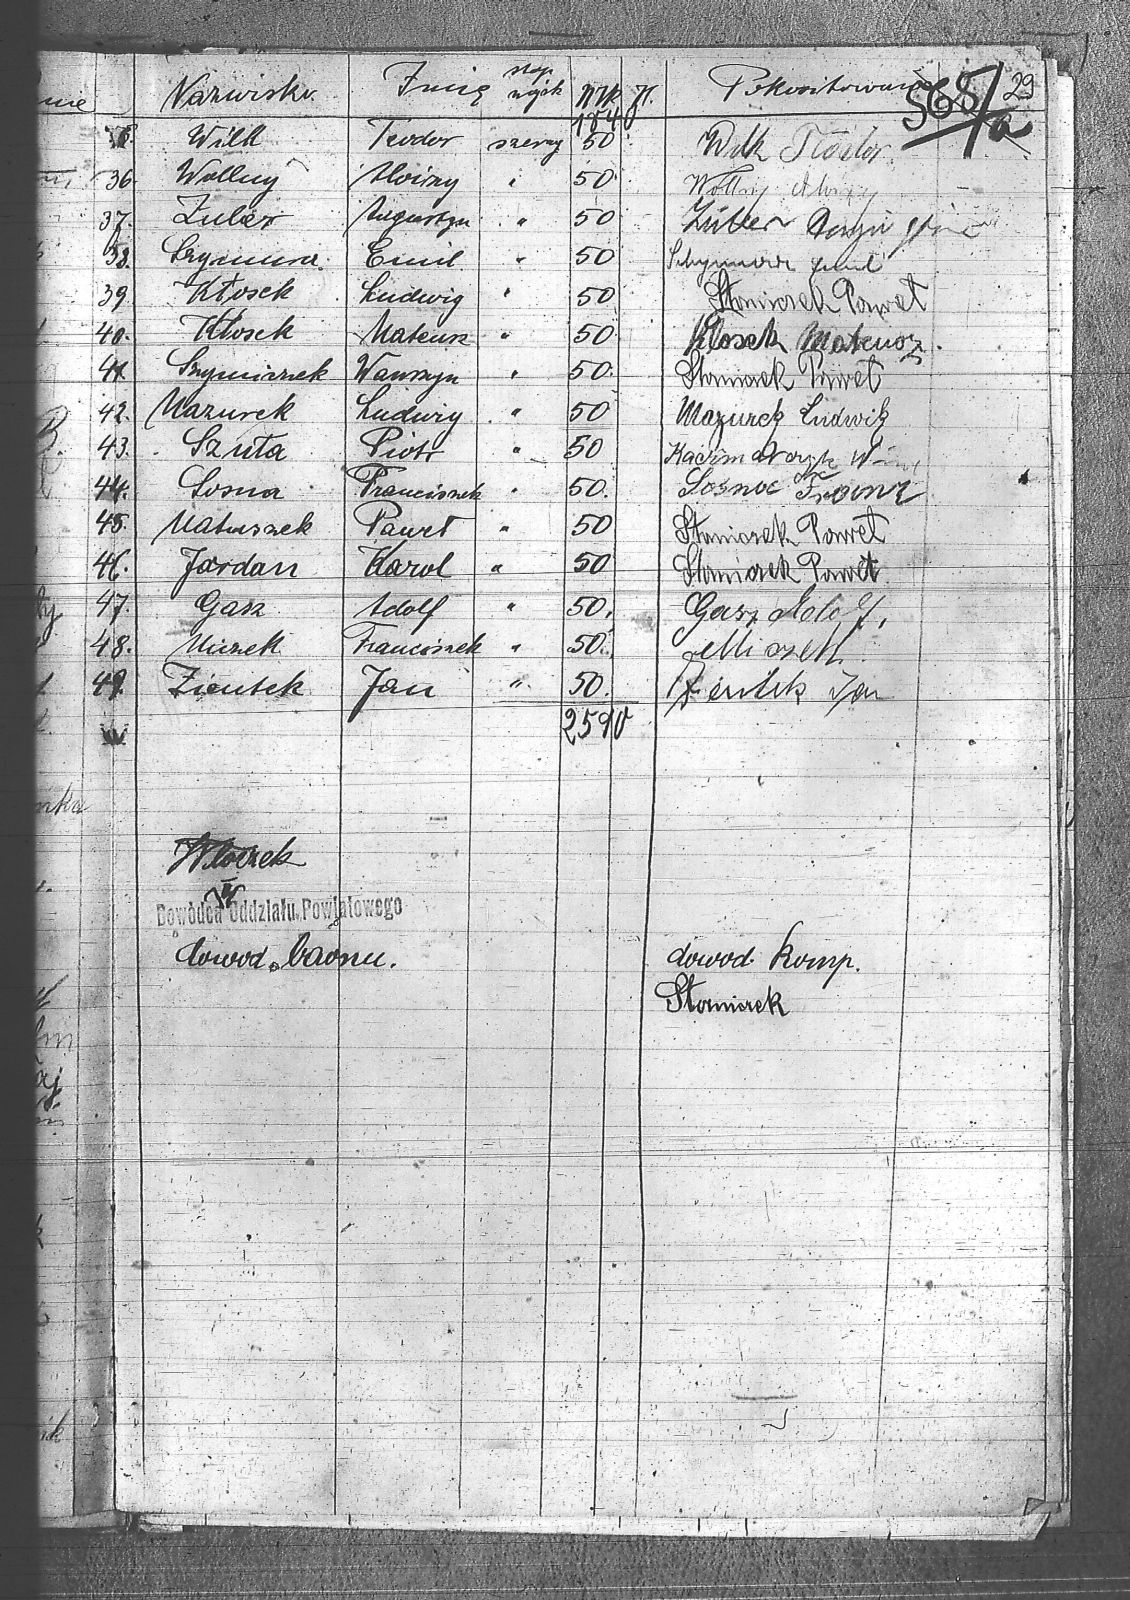 29
565/a
Nazwisko Imię stop. wojsk Mk. f. Pokwitowanie
1840
Wilk Teodor szereg 50 Wilk Teodor
36. Wollny Aloizy " 50 Wollny Aloizy
37. Zuber Augustyn " 50 Zuber
38. Szymura Emil " 50 Schymura Emil
39. Kłosek Ludwig " 50 Staniczek Paweł
40. Kłosek Mateusz " 50 Klosek Mateusz.
41. Szymiczek Wawrzyn " 50 Staniczek Paweł
42. Mazurek Ludwig " 50 Mazurek Ludwik
43. Szuta Piotr " 50 Kaczmarczyk
44. Sosna Franciszek " 50. Sosna Franz
45. Matuszek Paweł " 50 Staniczek Paweł
46. Jordan Karol " 50 Staniczek Paweł
47. Gasz Adolf " 50. Gasz Adolf,
48. Miczek Franciszek " 50. Miczek
49. Zientek Jan " 50. Zientek Jan
2590
Włoczek
Dowódca Oddziału Powiatowego
dowod. baonu. dowod. Komp.
Staniczek